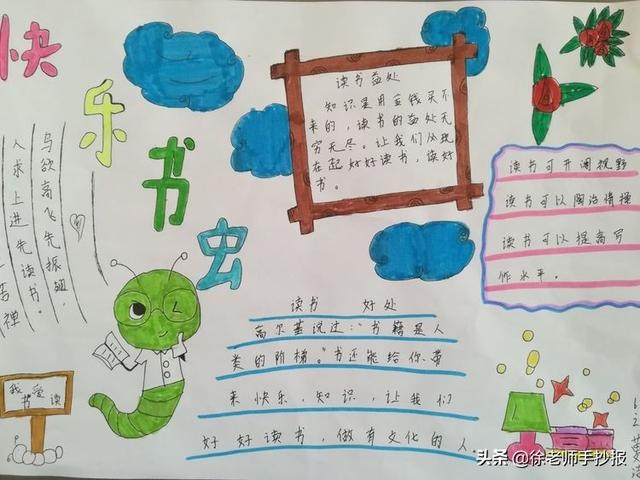 快乐书虫
读书益处
知识是用金钱买不
来的，读书的益处无
穷无尽。让我们从现
在起好好读书，读好
书。
读书可开阔视野
读书可以陶冶情操
读书可以提高写
作水平。
鸟欲高飞先振翅，
人求上进先读书。
读书 好处
高尔基说过："书籍是人
类的阶梯。"书还能给你带
来快乐，知识，让我们
好好读书，做有文化的人。
我爱
书读
头条 @徐老师手抄报